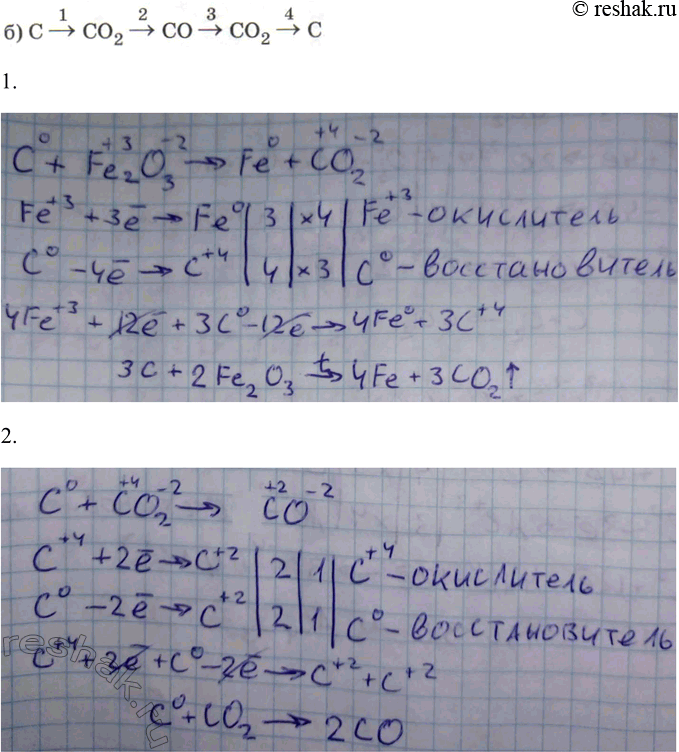 © reshak.ru
б) C →1 CO₂ →2 CO →3 CO₂ →4 C
1.
C⁰ + Fe₂⁺³O₃⁻² → Fe⁰ + C⁺⁴O₂⁻²
Fe⁺³ + 3ē → Fe⁰ | 3 | ×4 | Fe⁺³ - окислитель
C⁰ - 4ē → C⁺⁴ | 4 | ×3 | C⁰ - восстановитель
4Fe⁺³ + 12ē + 3C⁰ - 12ē → 4Fe⁰ + 3C⁺⁴
3C + 2Fe₂O₃ →t 4Fe + 3CO₂↑
2.
C⁰ + C⁺⁴O₂⁻² → C⁺²O⁻²
C⁺⁴ + 2ē → C⁺² | 2 | 1 | C⁺⁴ - окислитель
C⁰ - 2ē → C⁺² | 2 | 1 | C⁰ - восстановитель
C⁺⁴ + 2ē + C⁰ - 2ē → C⁺² + C⁺²
C⁰ + CO₂ → 2CO
reshak.ru